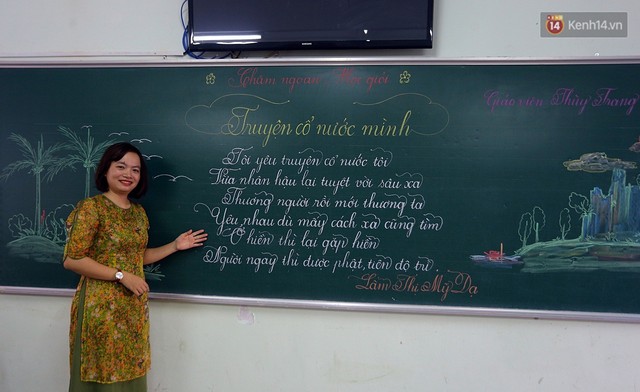 Kenh14.vn
Chăm ngoan Học giỏi
Giáo viên Thùy Trang
Truyện cổ nước mình
Tôi yêu truyện cổ nước tôi
Vừa nhân hậu lại tuyệt vời sâu xa
Thương người rồi mới thương ta
Yêu nhau dù mấy cách xa cũng tìm
Ở hiền thì lại gặp hiền
Người ngay thì được phật, tiên độ trì
Lâm Thị Mỹ Dạ